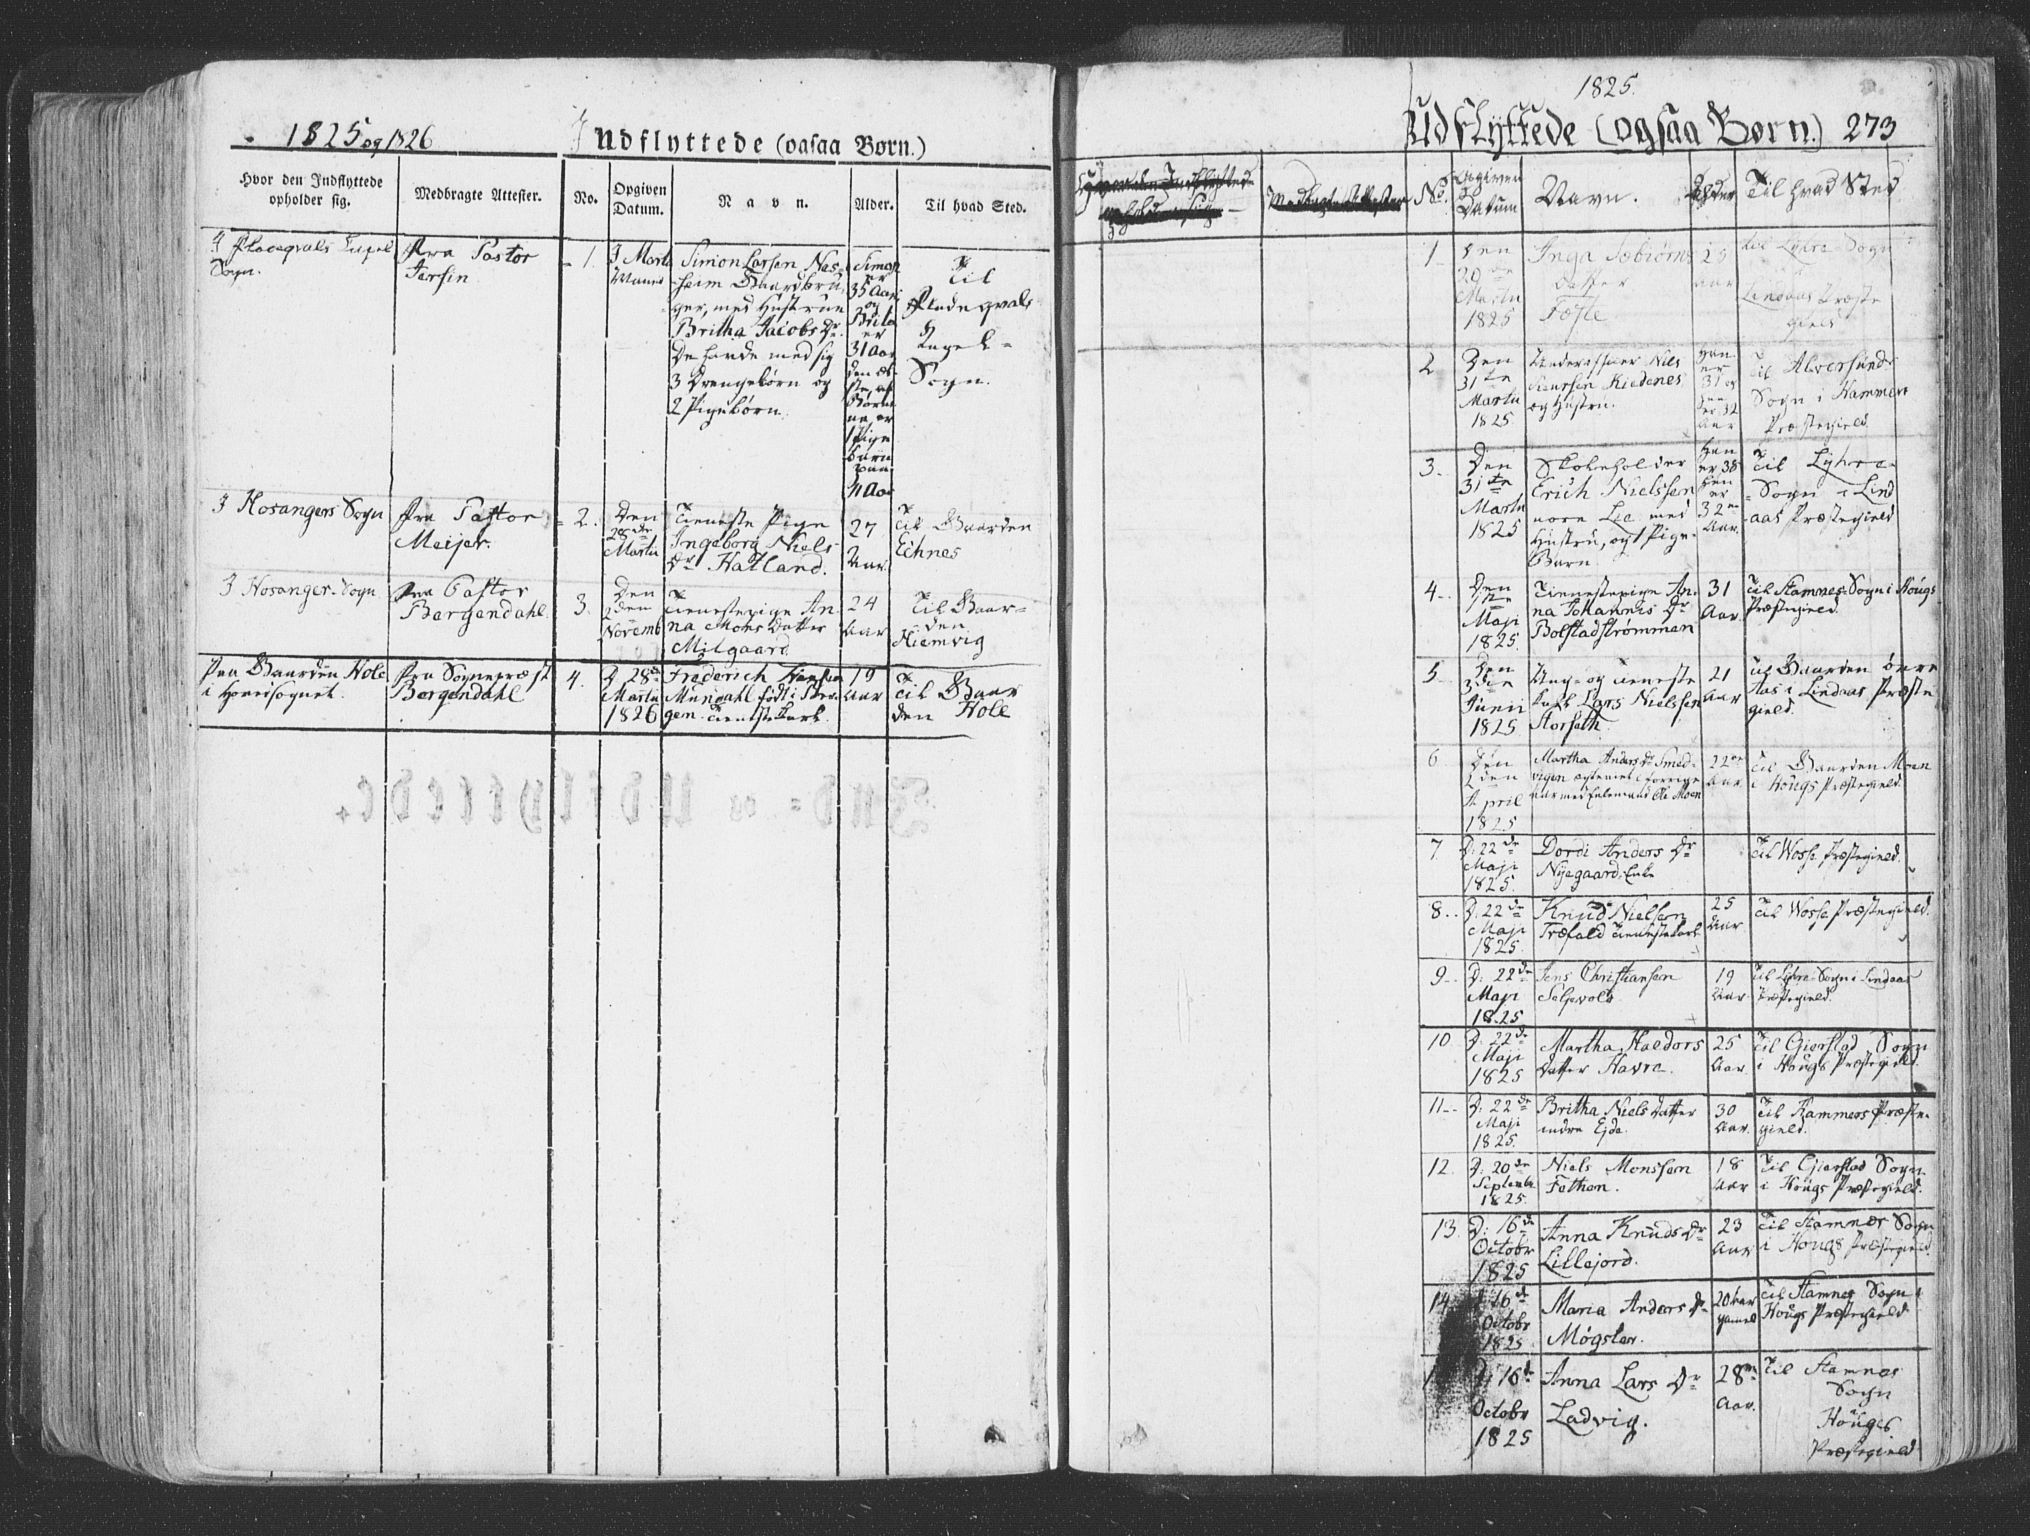 1825 og 1826
Indflyttede (ogsaa Børn.)
Hvor den Indflyttede
opholder sig.
Medbragte Attester.
No.
Opgiven
Datum.
Navn.
Alder.
Til hvad Sted.
Sogn.
Fra Pastor
1.
3 Marti
Simon Larsen Nas-
heim Gaardbru-
ger, med Hustrue
Britha Jacobs Dr.
De havde med sig
3 Drengebørn og
2 Pigebørn.
Simon
er
35 Aar
og
Brita
er
31 Aar
Til
Sogn.
I Hosangers Sogn
Fra Pastor
Meijer.
2.
Den
28de
Martii
Tieneste Pige
Ingeborg Niels
Dr Hatland.
27
Aar.
Til Gaarden
Eihnes
I Hosanger-Sogn
Fra Pastor
Bergendahl.
3.
Den
2den
Novemb
Tienestepige An-
na Mons Datter
Milgaard
24
Aar
Til Gaar-
den
Hiemvig
Paa Gaarden Hole
i Hovedsognet.
Fra Sognepræst
Bergendahl
4.
D 28de
Martii
1826
Frederich
Mundahl født i Ber-
gen. Tieneste Karl.
19
Aar
Til Gaar
den Hole
1825.
Udflyttede (ogsaa Børn.) 273
No.
Opgiven
Datum
Navn.
Alder
Til hvad Sted
1
Den
20de
Martii
1825
Inga Sebiørns
Datter
25
Aar
til Lyhre Sogn
Lindaas Præste
gield
2
Den
31te
Martii
1825
Underofficer Niels
og Hustru.
Han
er
31 og
hun
er 32
Aar
Til Alversunds
Sogn i Hammers
Præstegield
3.
Den
31te
Martii
1825
Skoleholder
Erich Nielssen
Lie med
Hustru, og 1 Pige-
Barn.
Han
er 38
hun
er
32
Aar.
Til Lyhre
Sogn i Lind
aas Præstegield
4.
Den
1ste
Maji
1825.
Tienestepige An-
na Johannis Dr
Bolstadstrømmen
31
Aar.
Til Stamnes-Sogn i Hougs
Præstegield.
5.
Den
3die
Junii
1825
Unge- og tieneste
Karl Lars Nielssen
Storseth.
21
Aar
Til Gaarden øvre
Aas i Lindaas Præste
gield.
6.
Den
2den
April
1825
Martha Anders Dr Smed-
vigen ægteviet i forrige
Aar med Enkemand Ole Moen
22
Aar.
Til Gaarden Moen
i Hougs Præstegield.
7
D: 22de
Maji
1825.
Dordi Anders Dr
Nyegaard. Enke
Til Wosse Præstegield.
8.
D: 22de
Maji
1825.
Knud Nielsen
Træfald Tienestekarl
25
Aar
Til Wosse Præstegield.
9.
D: 22de
Maji
1825
Jens Christiansen
19
Aar
Til Lyhre-Sogn i Lindaas
Præstegield.
10
D: 22de
Maji
1825
Martha Haldors
Datter Havre.
25
Aar.
Til Gierstad Sogn
i Hougs Præstegield
11.
D: 22de
Maji
1825.
Britha Niels Datter
indre Ejde.
30
Aar.
Til Hammers Præste-
gield.
12.
D: 20de
Septembr
1825.
Niels Monssen
Fethen.
18
Aar
Til Gierstad Sogn
i Hougs Præstegield.
13.
D: 16de
Octobr
1825
Anna Knuds Dr
Lillejord.
23
Aar
Til Stamnes Sogn
i Hougs Præstegield
14
16de
Octobr
1825
Maria Anders Dr
Møgster.
20 Aar
gammel
Til Stamnes Sogn i
Hougs Præstegield
D: 16de
Octobr
1825
Anna Lars Dr
Ladvig.
28
Aar.
Til Stamnes
Sogn
Hougs
Præstegield